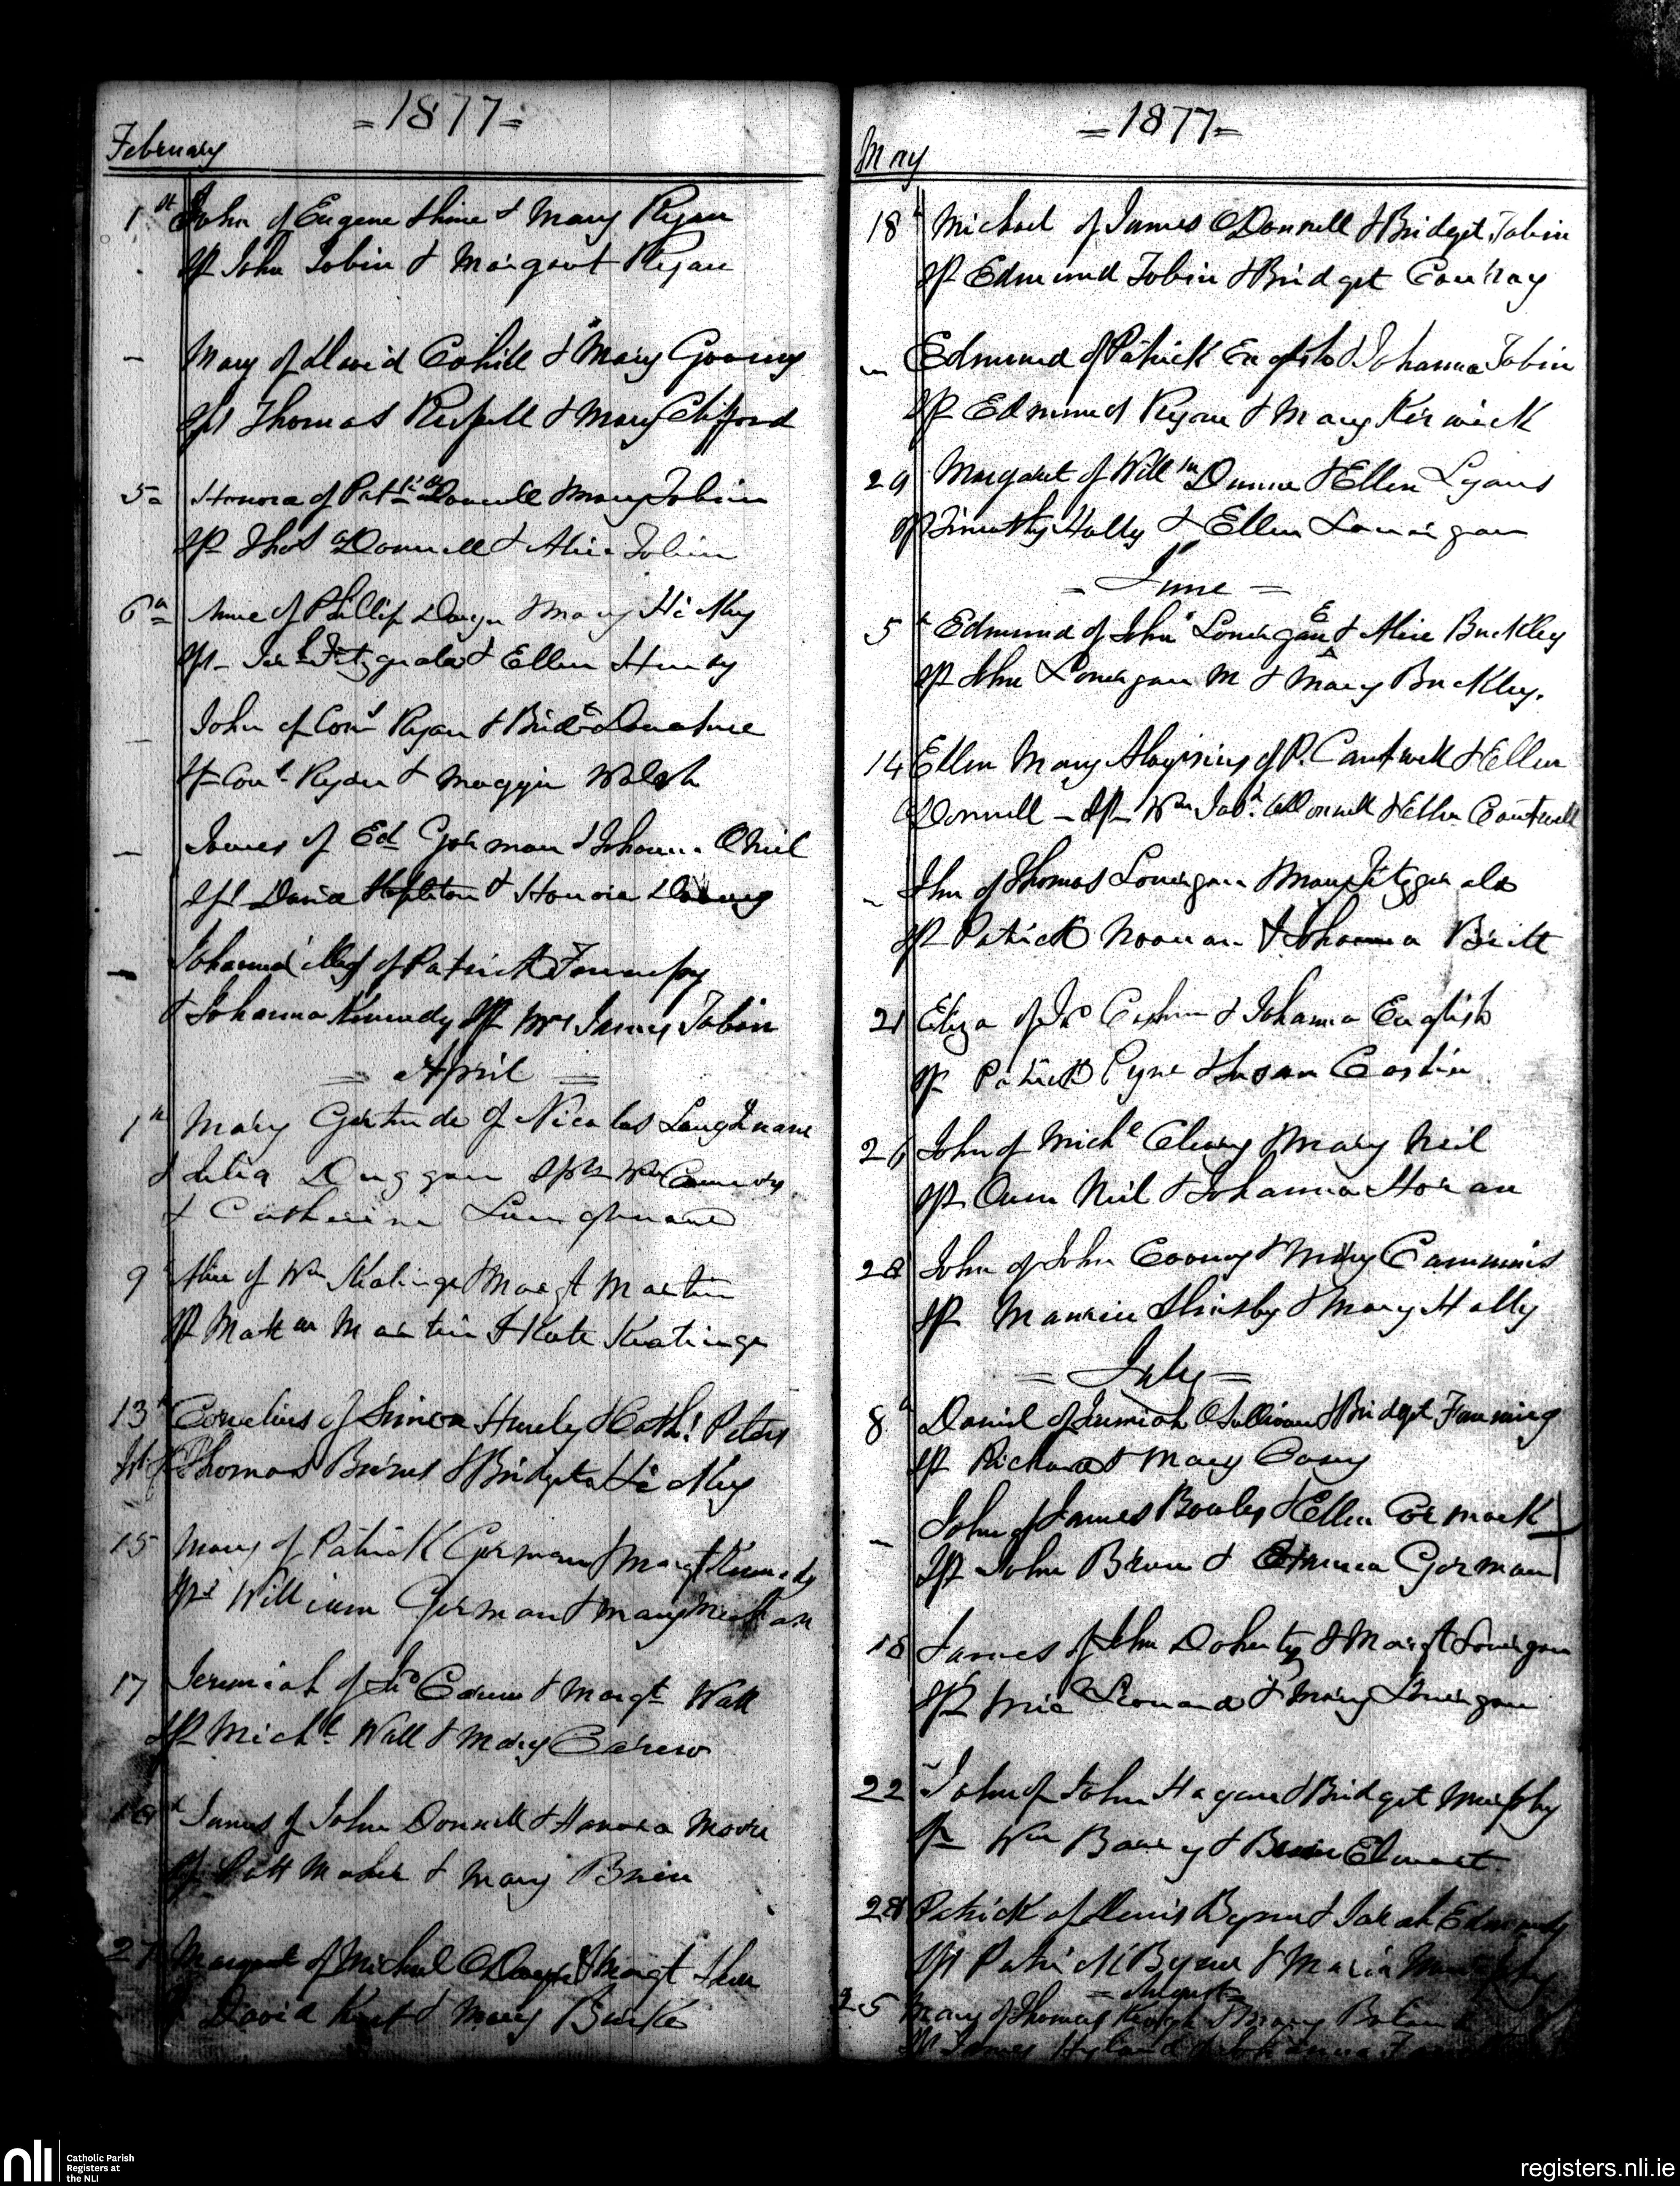 =1877=
February
1st John of Eugene Shine & Mary Ryan
Sp John Tobin & Margaret Ryan
– Mary of David Cahill & Mary Gooney
Sps Thomas & Mary Clifford
5 Honora of Patk O'Donnell & Mary Tobin
Sp Thos O'Donnell & Alice Tobin
6 Anne of Phillip & Mary Hickey
Sps Fitzgerald & Ellen
– John of Cors Ryan & Bridt Donohue
Sp Cors Ryan & Maggie Walsh
– James of Ed Gorman & Johanna O'Neil
Sps David Stapleton & Honora
– Johanna illeg of Patrick
& Johanna Kennedy Sp Mrs James Tobin
= April =
1 Mary Gertrude of Nicolas Loughnane
& Delia Duggan Sps Wm
& Catherine Loughnane
9 Alice of Wm Keatinge & Margt Martin
Sp Martin & Kate Keatinge
13 Cornelius of Simon Hurley & Cath: Peters
Sps Thomas & Bridget Hickey
15 Mary of Patrick Gorman & Margt Kennedy
Sps William Gorman & Mary Meehan
17 Jeremiah of Jno Carew & Margt Wall
Sp Michl Wall & Mary Carew
James of John Donnell & Honora
Sp Patt Maher & Mary Brien
27 Margaret of Michael & Margt
David & Mary Burke
=1877=
May
18 Michael of James O'Donnell & Bridget Tobin
Sp Edmund Tobin & Bridget Conway
– Edmund of Patrick English & Johanna Tobin
Sp Edmund Ryan & Mary Kerwick
29 Margaret of Willm Dunne & Ellen Lyons
Sp Timothy Hally & Ellen Lonergan
= June =
5 Edmund of John Lonergan E & Alice Buckley
Sp John Lonergan M & Mary Buckley.
14 Ellen Mary Aloysius of P. Cantwell & Ellen
O'Donnell – Sp Wm O'Donnell & Ellen Cantwell
– Jhn of Thomas Lonergan & Mary Fitzgerald
Sp Patrick Noonan & Johanna Britt
21 Eliza of Jno & Johanna English
Sp Patrick Pyne & Susan Costin
26 John of Michl Cleary & Mary Neil
Sp Owen Neil & Johanna Horan
28 John of John Cooney & Mary Cummins
Sp Maurice & Mary Hally
= July =
8 Daniel of Jeremiah O'Sullivan & Bridget Fanning
Sp Richard & Mary Casey
– John of James Bowles & Ellen Cormack
Sp John & Gorman
18 James of John Doherty & Margt Lonergan
Sp Mic Leonard & Mary Lonergan
22 John of John Hagan & Bridget Murphy
Sp Wm Barry &
28 Patrick of Denis Byrne & Sarah
Sps Patrick Byrne & Maria Murphy
= August =
25 Mary of Thomas Keogh & Mary
Sp James Hyland & Johanna
nli
Catholic Parish
Registers at
the NLI
registers.nli.ie